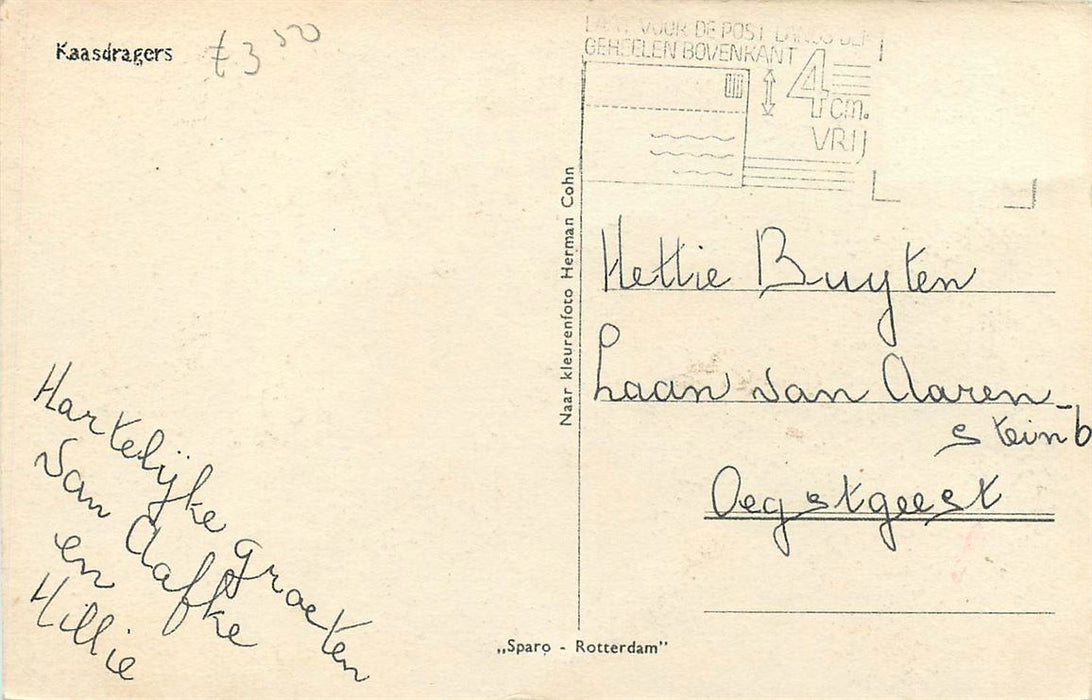 Kaasdragers
£ 3 50
LAAT VOOR DE POST LANGS DE
GEHEELEN BOVENKANT
4
cm.
VRIJ
Naar kleurenfoto Herman Cohn
Hettie Buyten
Laan van Aaren-
stein b
Oegstgeest
Hartelijke groeten
van Aafke
en
Hillie
„Sparo - Rotterdam”